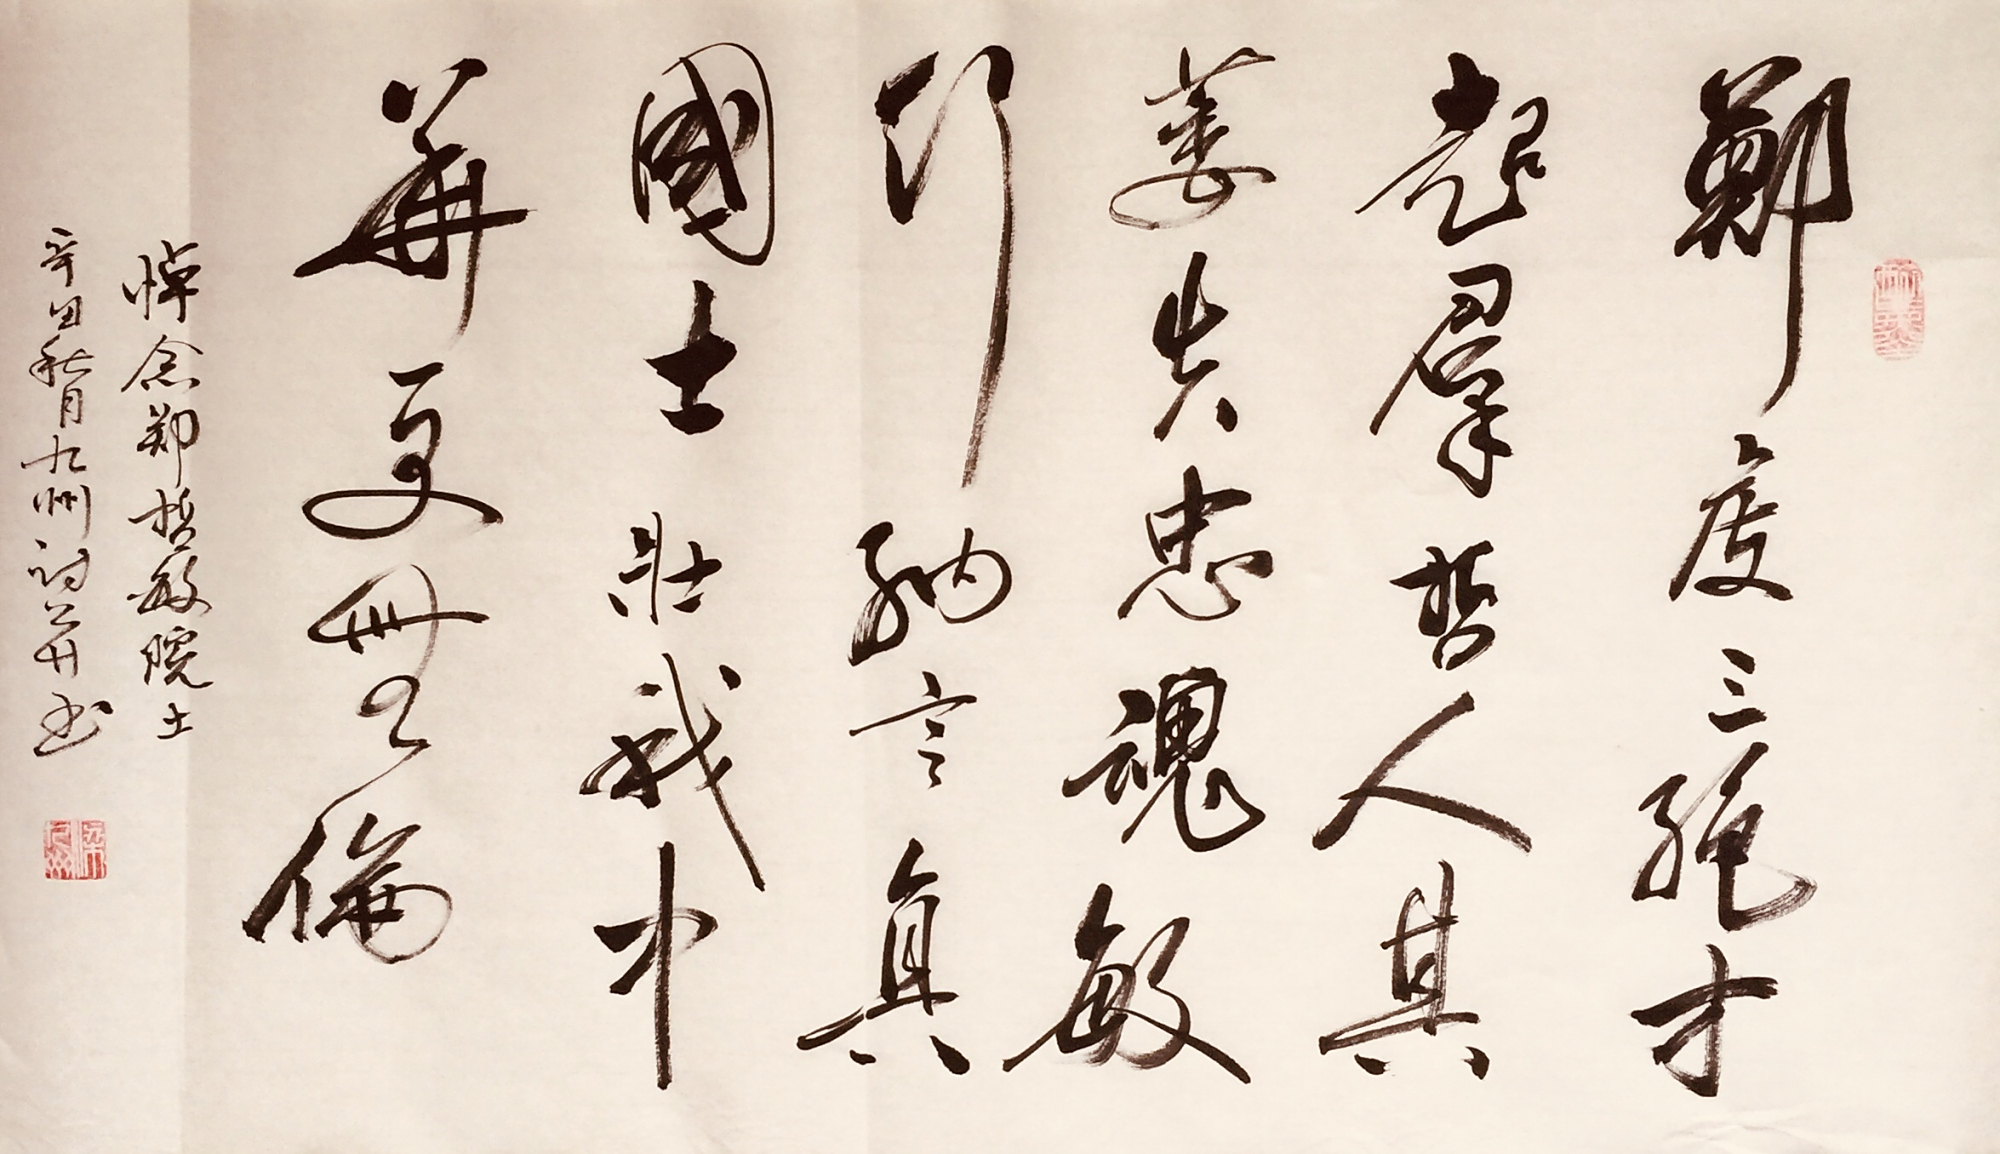 鄭虔三絶才
起羣哲人其
萎失忠魂敏
行訥言真
國士壯我中
華更無倫
悼念郑哲敏院士
辛丑秋月九州詩并书